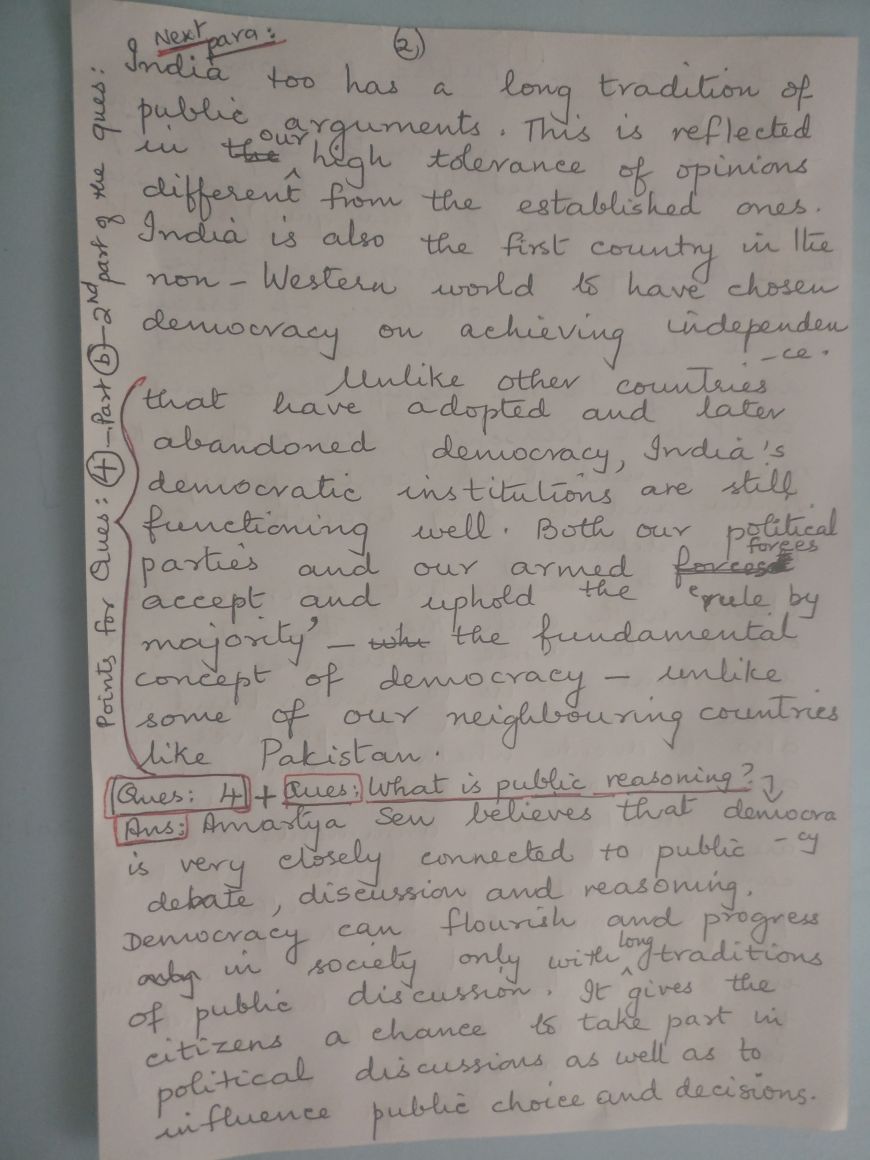 Next para:
(2)
India too has a long tradition of
public arguments. This is reflected
in the our high tolerance of opinions
different from the established ones.
India is also the first country in the
non-Western world to have chosen
democracy on achieving independen
-ce.
Unlike other countries
that have adopted and later
abandoned democracy, India's
democratic institutions are still
functioning well. Both our political
parties and our armed forces forces
accept and uphold the 'rule by
majority' - the fundamental
concept of democracy - unlike
some of our neighbouring countries
like Pakistan.
Points for Ques: (4) - Part (b) - 2nd part of the ques:
Ques: 4 + Ques: What is public reasoning?
Ans: Amartya Sen believes that democra
-cy
is very closely connected to public
debate, discussion and reasoning.
Democracy can flourish and progress
only in society only with long traditions
of public discussion. It gives the
citizens a chance to take part in
political discussions as well as to
influence public choice and decisions.